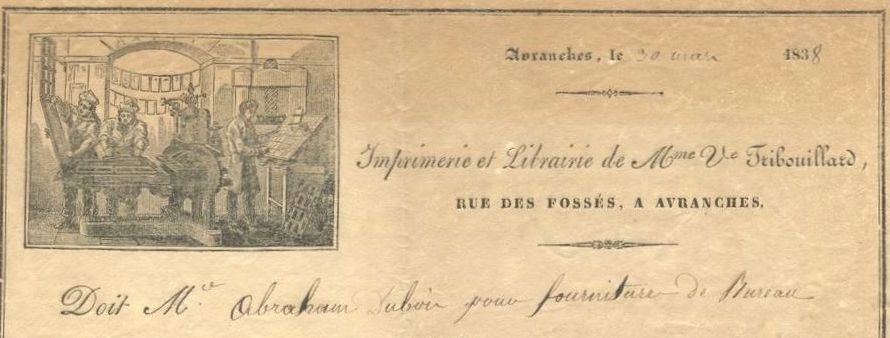 Avranches, le 30 mars 1838
Imprimerie et Librairie de Mme Ve Tribouillard,
RUE DES FOSSÉS, A AVRANCHES.
Doit Mr Abraham Dubois pour fourniture de Bureau